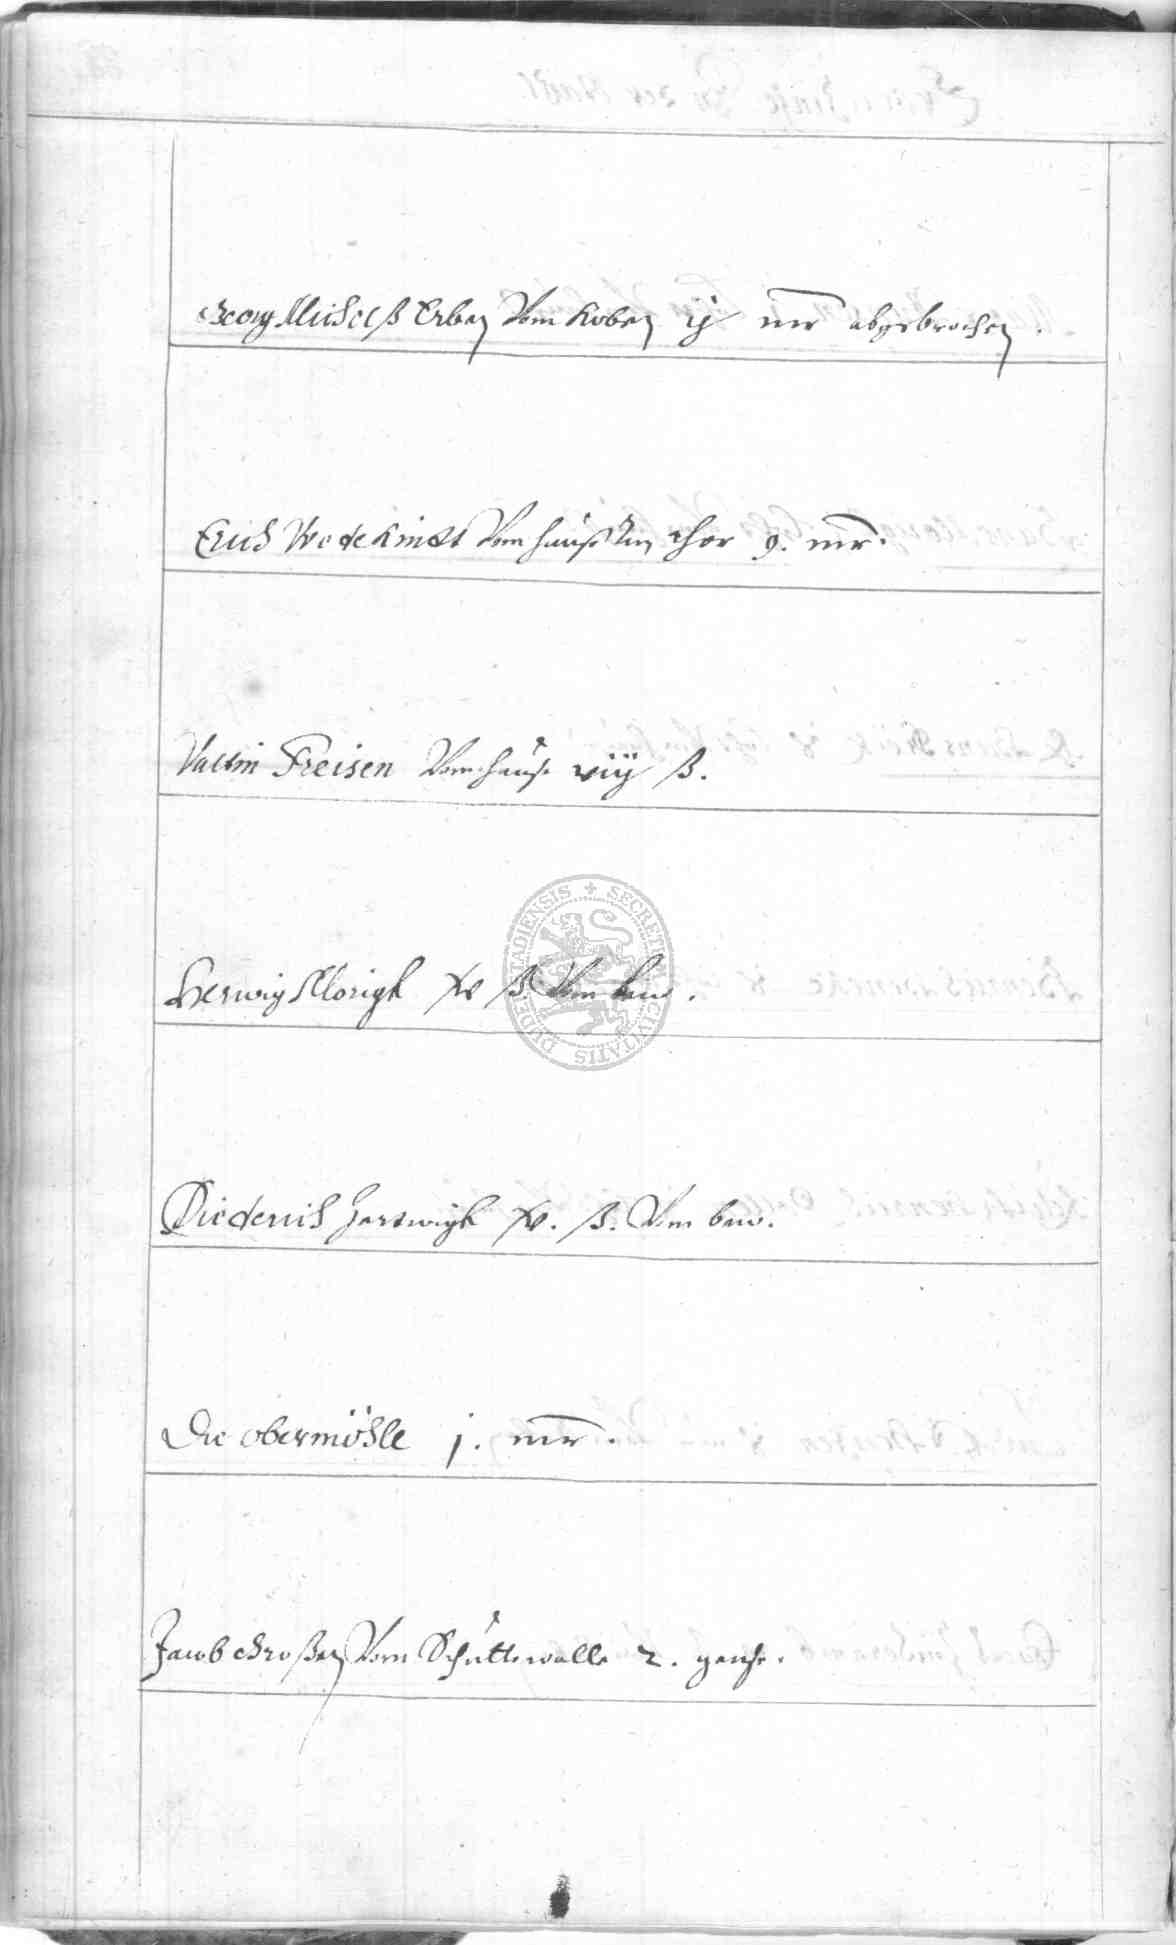 Georg Michels Erben Vom Koben ij mr abgebrochen.
Erich Wedekindt Vom hauß Im thor 9. mr.
Valtin Freisen Vom hauß viij ß.
Herwig Klorigk xv ß Vom baw.
Diederich Hartwigk xv. ß. Vom baw.
Die obermöhle j. mr.
Jacob Großen Vom Schüttewalle 2. gense.
SECRETUM CIVITATIS DUDERSTADIENSIS